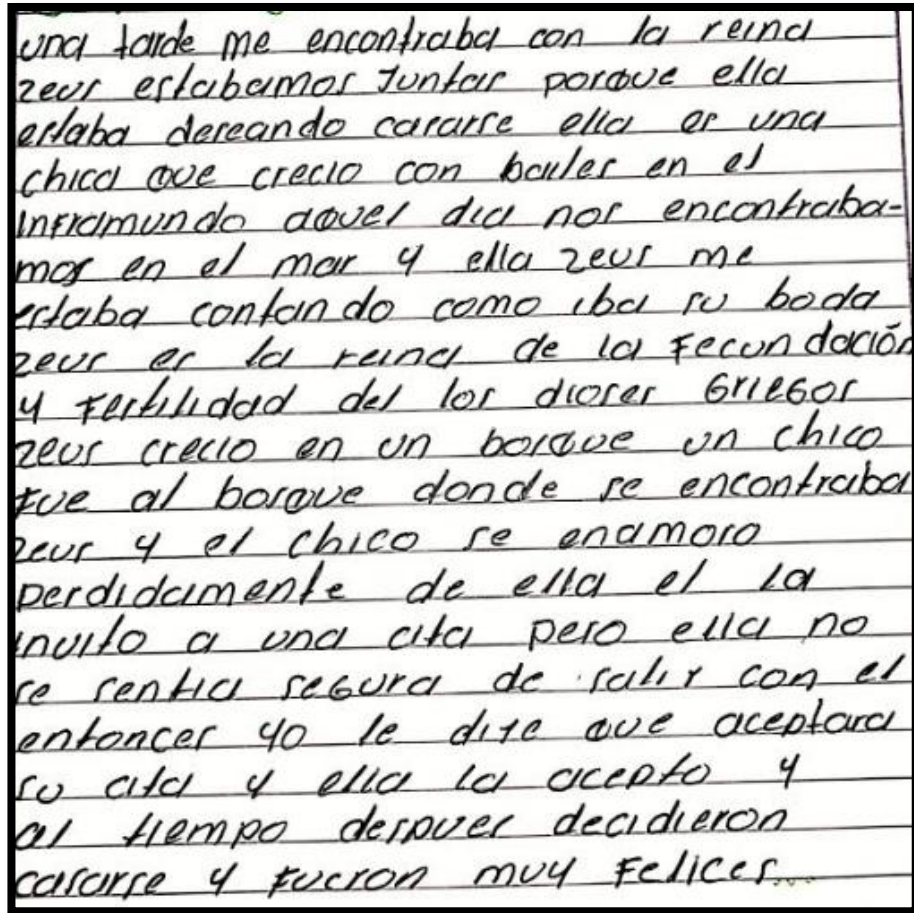 una tarde me encontraba con la reina
zeus estabamos Juntas porque ella
estaba deseando casarse ella es una
chica que crecio con bailes en el
inframundo aquel dia nos encontraba-
mos en el mar y ella zeus me
estaba contando como iba su boda
zeus es la reina de la Fecundación
y Fertilidad del los dioses Griegos
zeus crecio en un bosque un chico
Fue al bosque donde se encontraba
zeus y el chico se enamoro
perdidamente de ella el la
invito a una cita pero ella no
se sentia segura de salir con el
entonces yo le dije que aceptara
su cita y ella la acepto y
al tiempo despues decidieron
casarse y Fueron muy Felices...